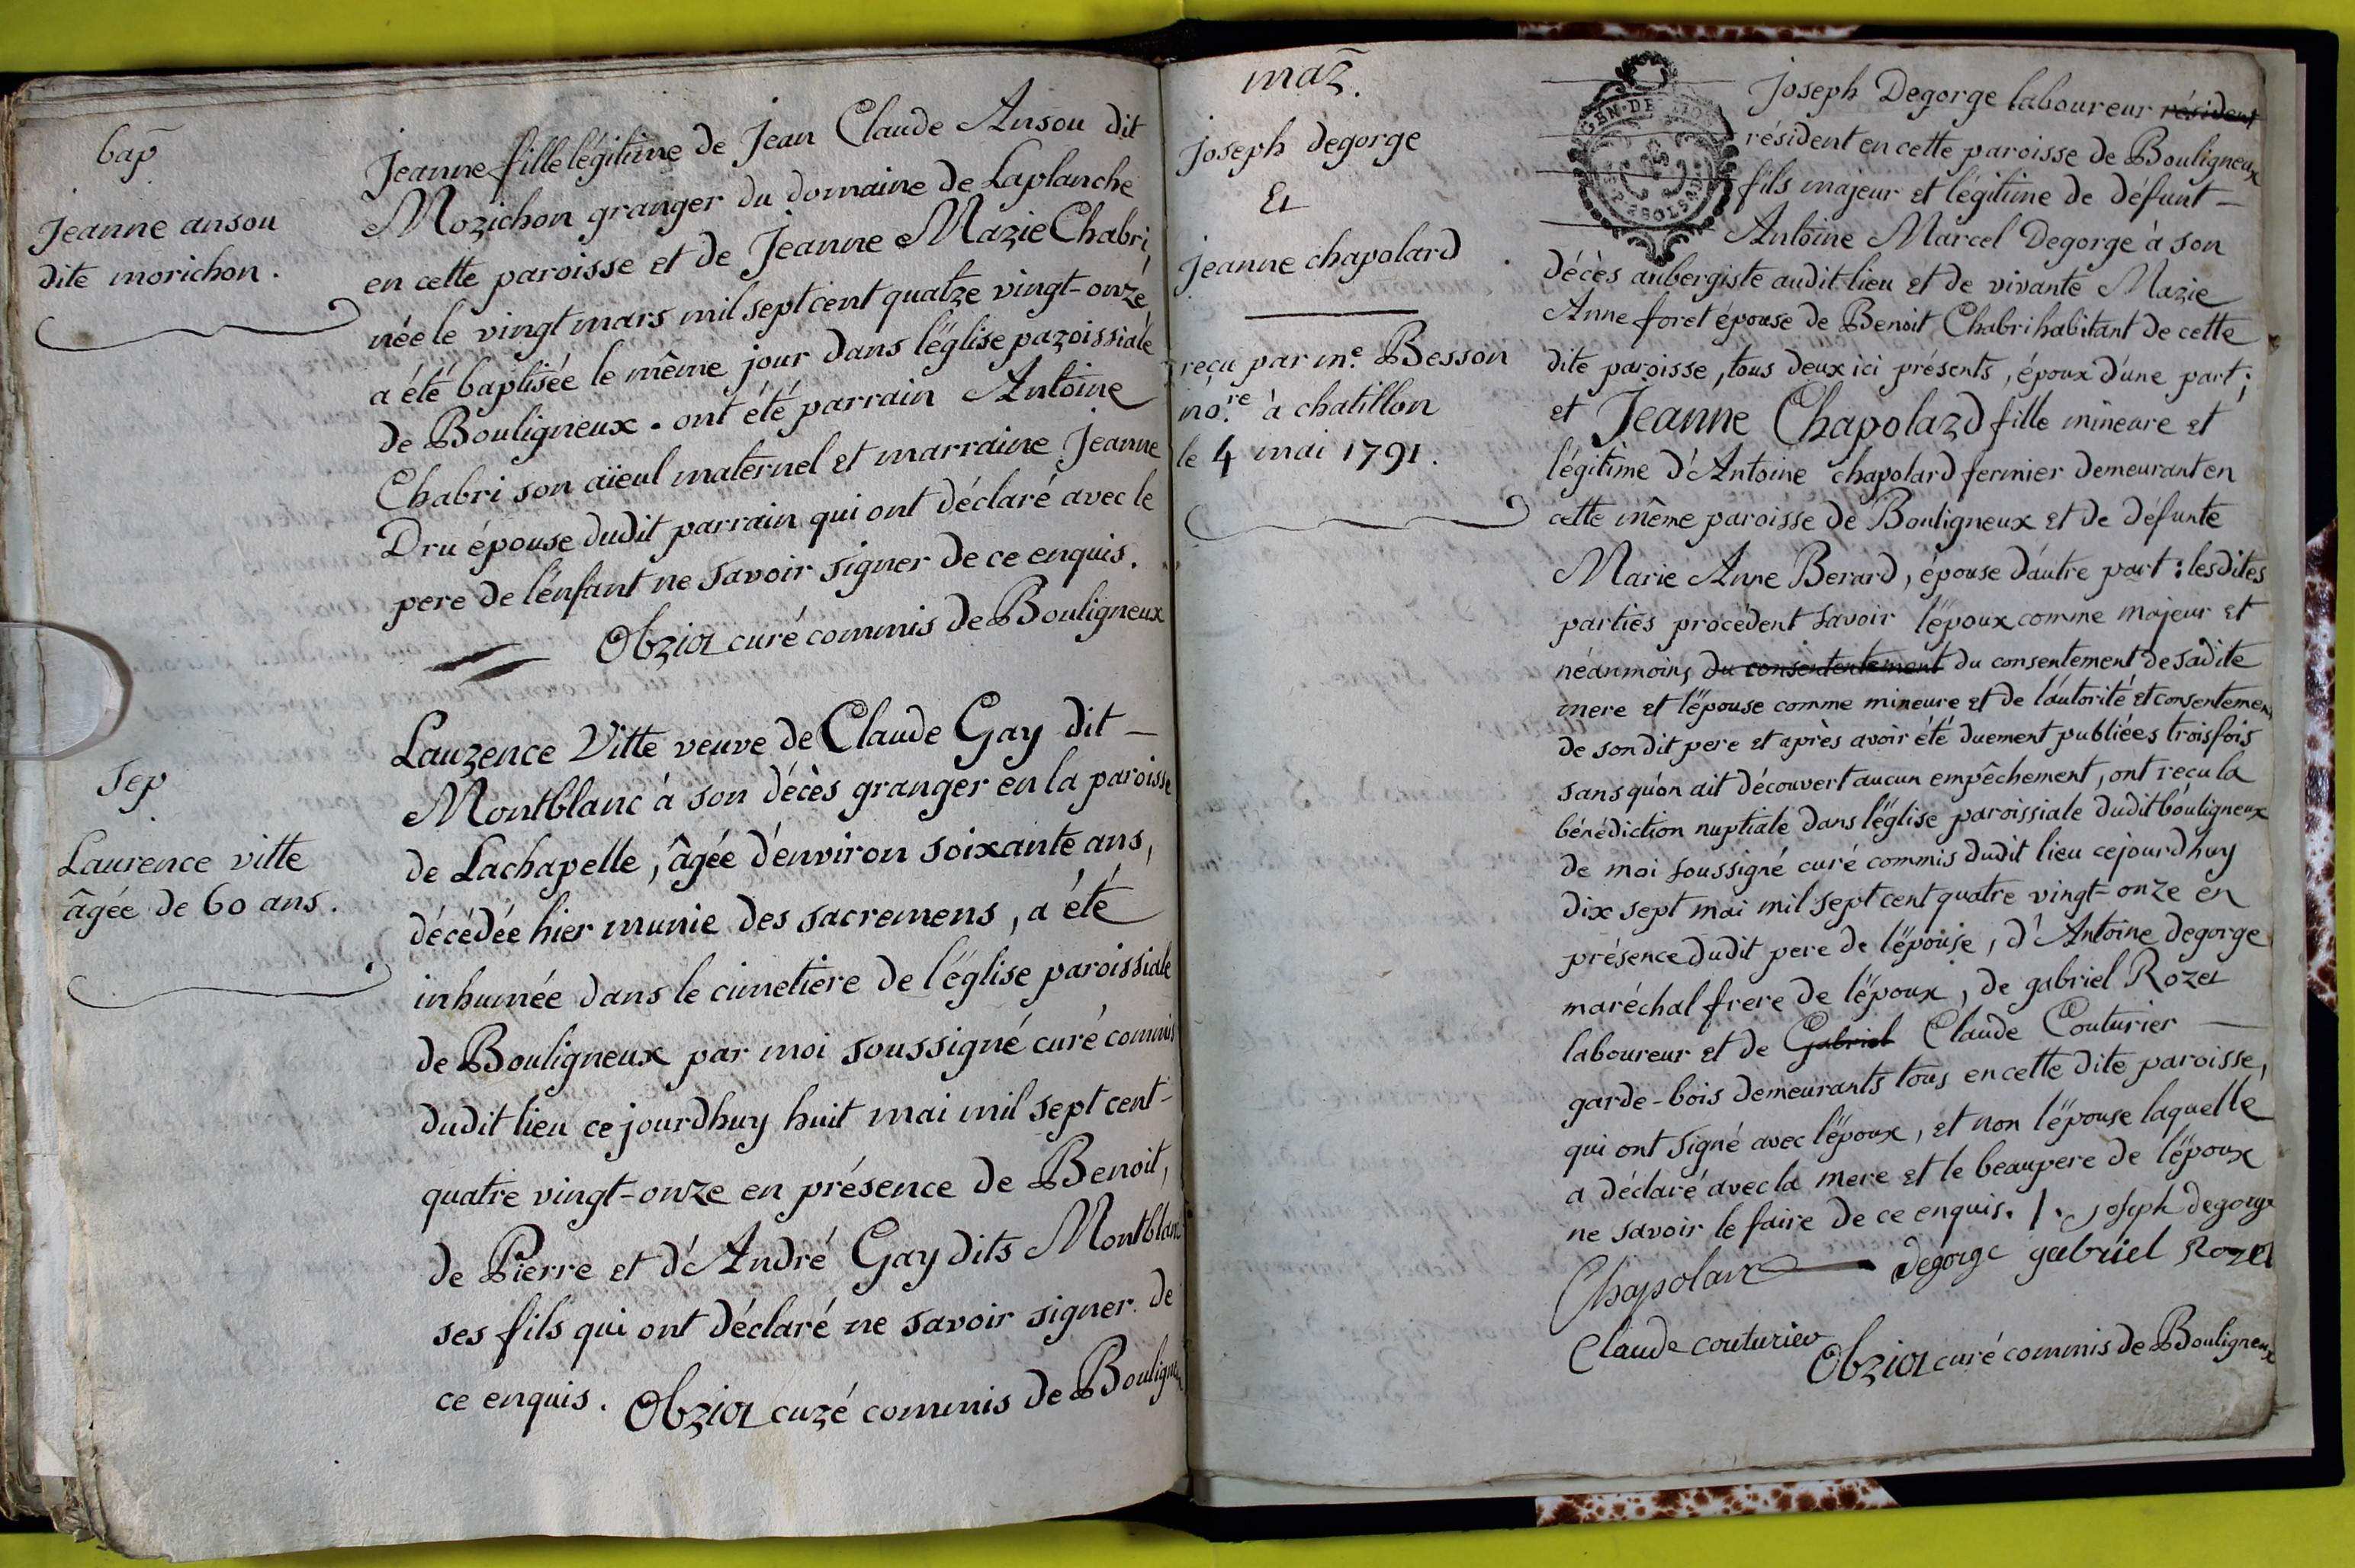 bap
Jeanne ansou
dite morichon.
Jeanne fille légitime de Jean Claude Ansou dit
Morichon granger du domaine de Laplanche
en cette paroisse et de Jeanne Marie Chabri,
née le vingt mars mil sept cent quatre vingt-onze
a été baptisée le même jour dans l'église paroissiale
de Bouligneux. ont été parrain Antoine
Chabri son aïeul maternel et marraine Jeanne
Dru épouse dudit parrain qui ont déclaré avec le
pere de l'enfant ne savoir signer de ce enquis.
curé commis de Bouligneux
sep
Laurence vitte
âgée de 60 ans.
Laurence Vitte veuve de Claude Gay dit —
Montblanc à son décès granger en la paroisse
de Lachapelle, âgée d'environ soixante ans,
décédée hier munie des sacremens, a été
inhumée dans le cimetiere de l'église paroissiale
de Bouligneux par moi soussigné curé commis
dudit lieu ce jourdhuy huit mai mil sept cent-
quatre vingt-onze en présence de Benoit,
de Pierre et d'André Gay dits Montblanc
ses fils qui ont déclaré ne savoir signer de
ce enquis. curé commis de Bouligneux
mar.
joseph degorge
Et
jeanne chapolard
reçu par me. Besson
no.re à chatillon
le 4 mai 1791.
GEN. DE
Joseph Degorge laboureur résident
résident en cette paroisse de Bouligneux
fils majeur et légitime de défunt —
Antoine Marcel Degorge à son
décès aubergiste audit lieu et de vivante Marie
Anne foret épouse de Benoit Chabri habitant de cette
dite paroisse, tous deux ici présents, époux d'une part;
et Jeanne Chapolard fille mineure et
légitime d'Antoine chapolard fermier demeurant en
cette même paroisse de Bouligneux et de défunte
Marie Anne Berard, épouse d'autre part: lesdites
parties procédent savoir l'époux comme majeur et
néanmoins du consententement du consentement de sadite
mere et l'épouse comme mineure et de l'autorité et consentement
de sondit pere et après avoir été duement publiées trois fois
sans qu'on ait découvert aucun empêchement, ont recu la
bénédiction nuptiale dans l'église paroissiale dudit bouligneux
de moi soussigné curé commis dudit lieu cejourdhuy
dix sept mai mil sept cent quatre vingt-onze en
présence dudit pere de l'épouse, d'Antoine degorge
maréchal frere de l'époux, de gabriel Rozet
laboureur et de Gabriel Claude Couturier —
garde-bois demeurants tous en cette dite paroisse,
qui ont signé avec l'époux, et non l'épouse laquelle
a déclaré avec la mere et le beaupere de l'époux
ne savoir le faire de ce enquis. /. joseph degorge
Chapolard degorge gabriel Rozet
Claude couturier curé commis de Bouligneux